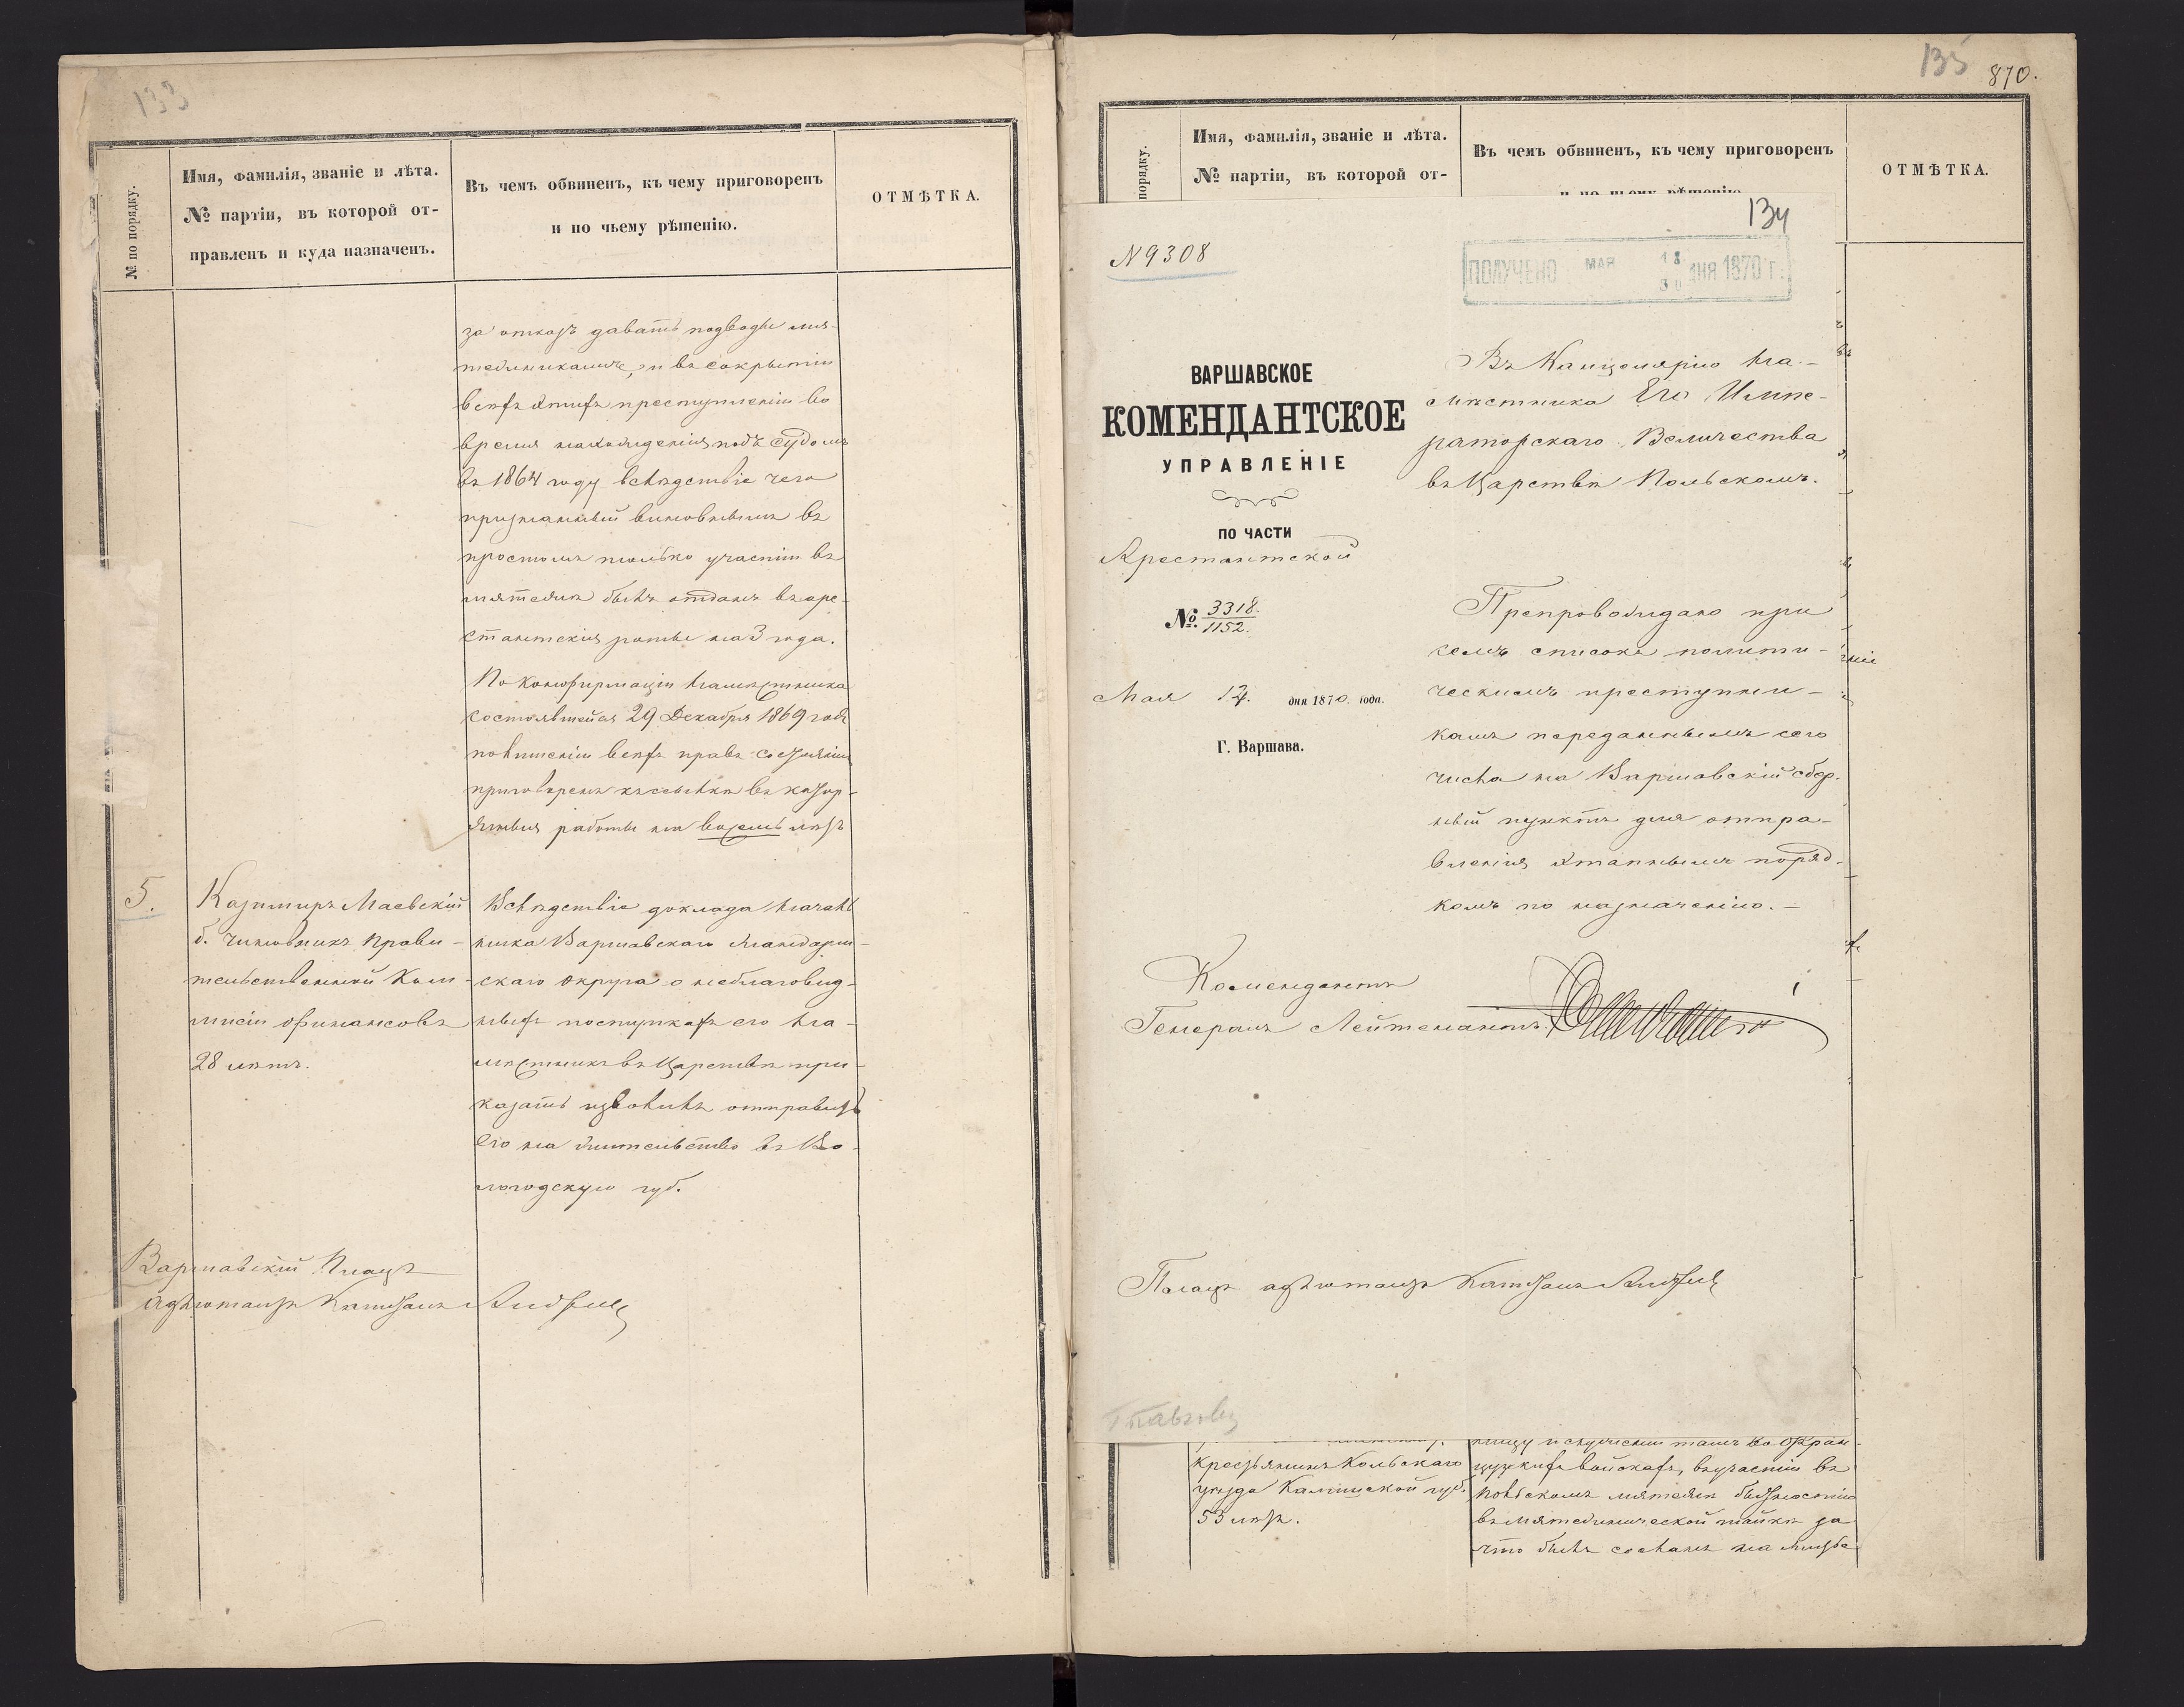 133
№ по порядку.
Имя, фамилія, званіе и лѣта.
№ партіи, въ которой от-
правленъ и куда назначенъ.
Въ чемъ обвиненъ, къ чему приговоренъ
и по чьему рѣшенію.
ОТМѢТКА.
за отказъ давать подводы мя-
тежникамъ, и въ сокрытіи
всѣхъ этихъ преступленій во
время нахожденія подъ судомъ
въ 1864 году вслѣдствіе чего
признанный виновнымъ въ
простомъ только участіи въ
мятежѣ былъ отданъ въ аре-
стантскія роты на 3 года.
По конфирмаціи Намѣстника
состоявшейся 29 Декабря 1869 года
по лишеніи всѣхъ правъ состоянія
приговоренъ къ ссылкѣ въ катор-
жныя работы на восемь лѣтъ
5.
Казимиръ Маевскій
б. чиновникъ Прави-
тельственной Ком-
мисіи Финансовъ
28 лѣтъ.
Вслѣдствіе доклада Началь
ника Варшавскаго Жандарм-
скаго Округа о неблаговид-
ныхъ поступкахъ его На-
мѣстникъ въ Царствѣ при-
казать изволилъ отправить
его на жительство въ Во-
логодскую губ.
Варшавскій Плацъ
адъютантъ Капитанъ
135
870.
порядку.
Имя, фамилія, званіе и лѣта.
№ партіи, въ которой от-
Въ чемъ обвиненъ, къ чему приговоренъ
и по чьему рѣшенію
ОТМѢТКА.
134
N 9308
ПОЛУЧЕНО МАЯ 18/30 ДНЯ 1870 г.
ВАРШАВСКОЕ
КОМЕНДАНТСКОЕ
УПРАВЛЕНІЕ
ПО ЧАСТИ
Арестантской
№ 3318./1152.
Мая 14. дня 1870. года.
Г. Варшава.
Въ Канцелярію На-
мѣстника Его Импе-
раторскаго Величества
въ Царствѣ Польскомъ.
Препровождаю при
семъ списокъ полити-
ческимъ преступни-
камъ переданнымъ сего
числа на Варшавскій сбор-
ный пунктъ для отпра-
вленія этапнымъ поряд-
комъ по назначенію.-
Комендантъ
Генералъ Лейтенантъ
Плацъ адъютантъ Капитанъ
Крестьянинъ Кольскаго
уѣзда Калишской губ.
53 лѣтъ.
ницу и служеніи тамъ во Фран-
цузкихъ войскахъ, въ участіи въ
Польскомъ мятежѣ бытностію
въ мятежнической шайкѣ за
что былъ сосланъ на житье